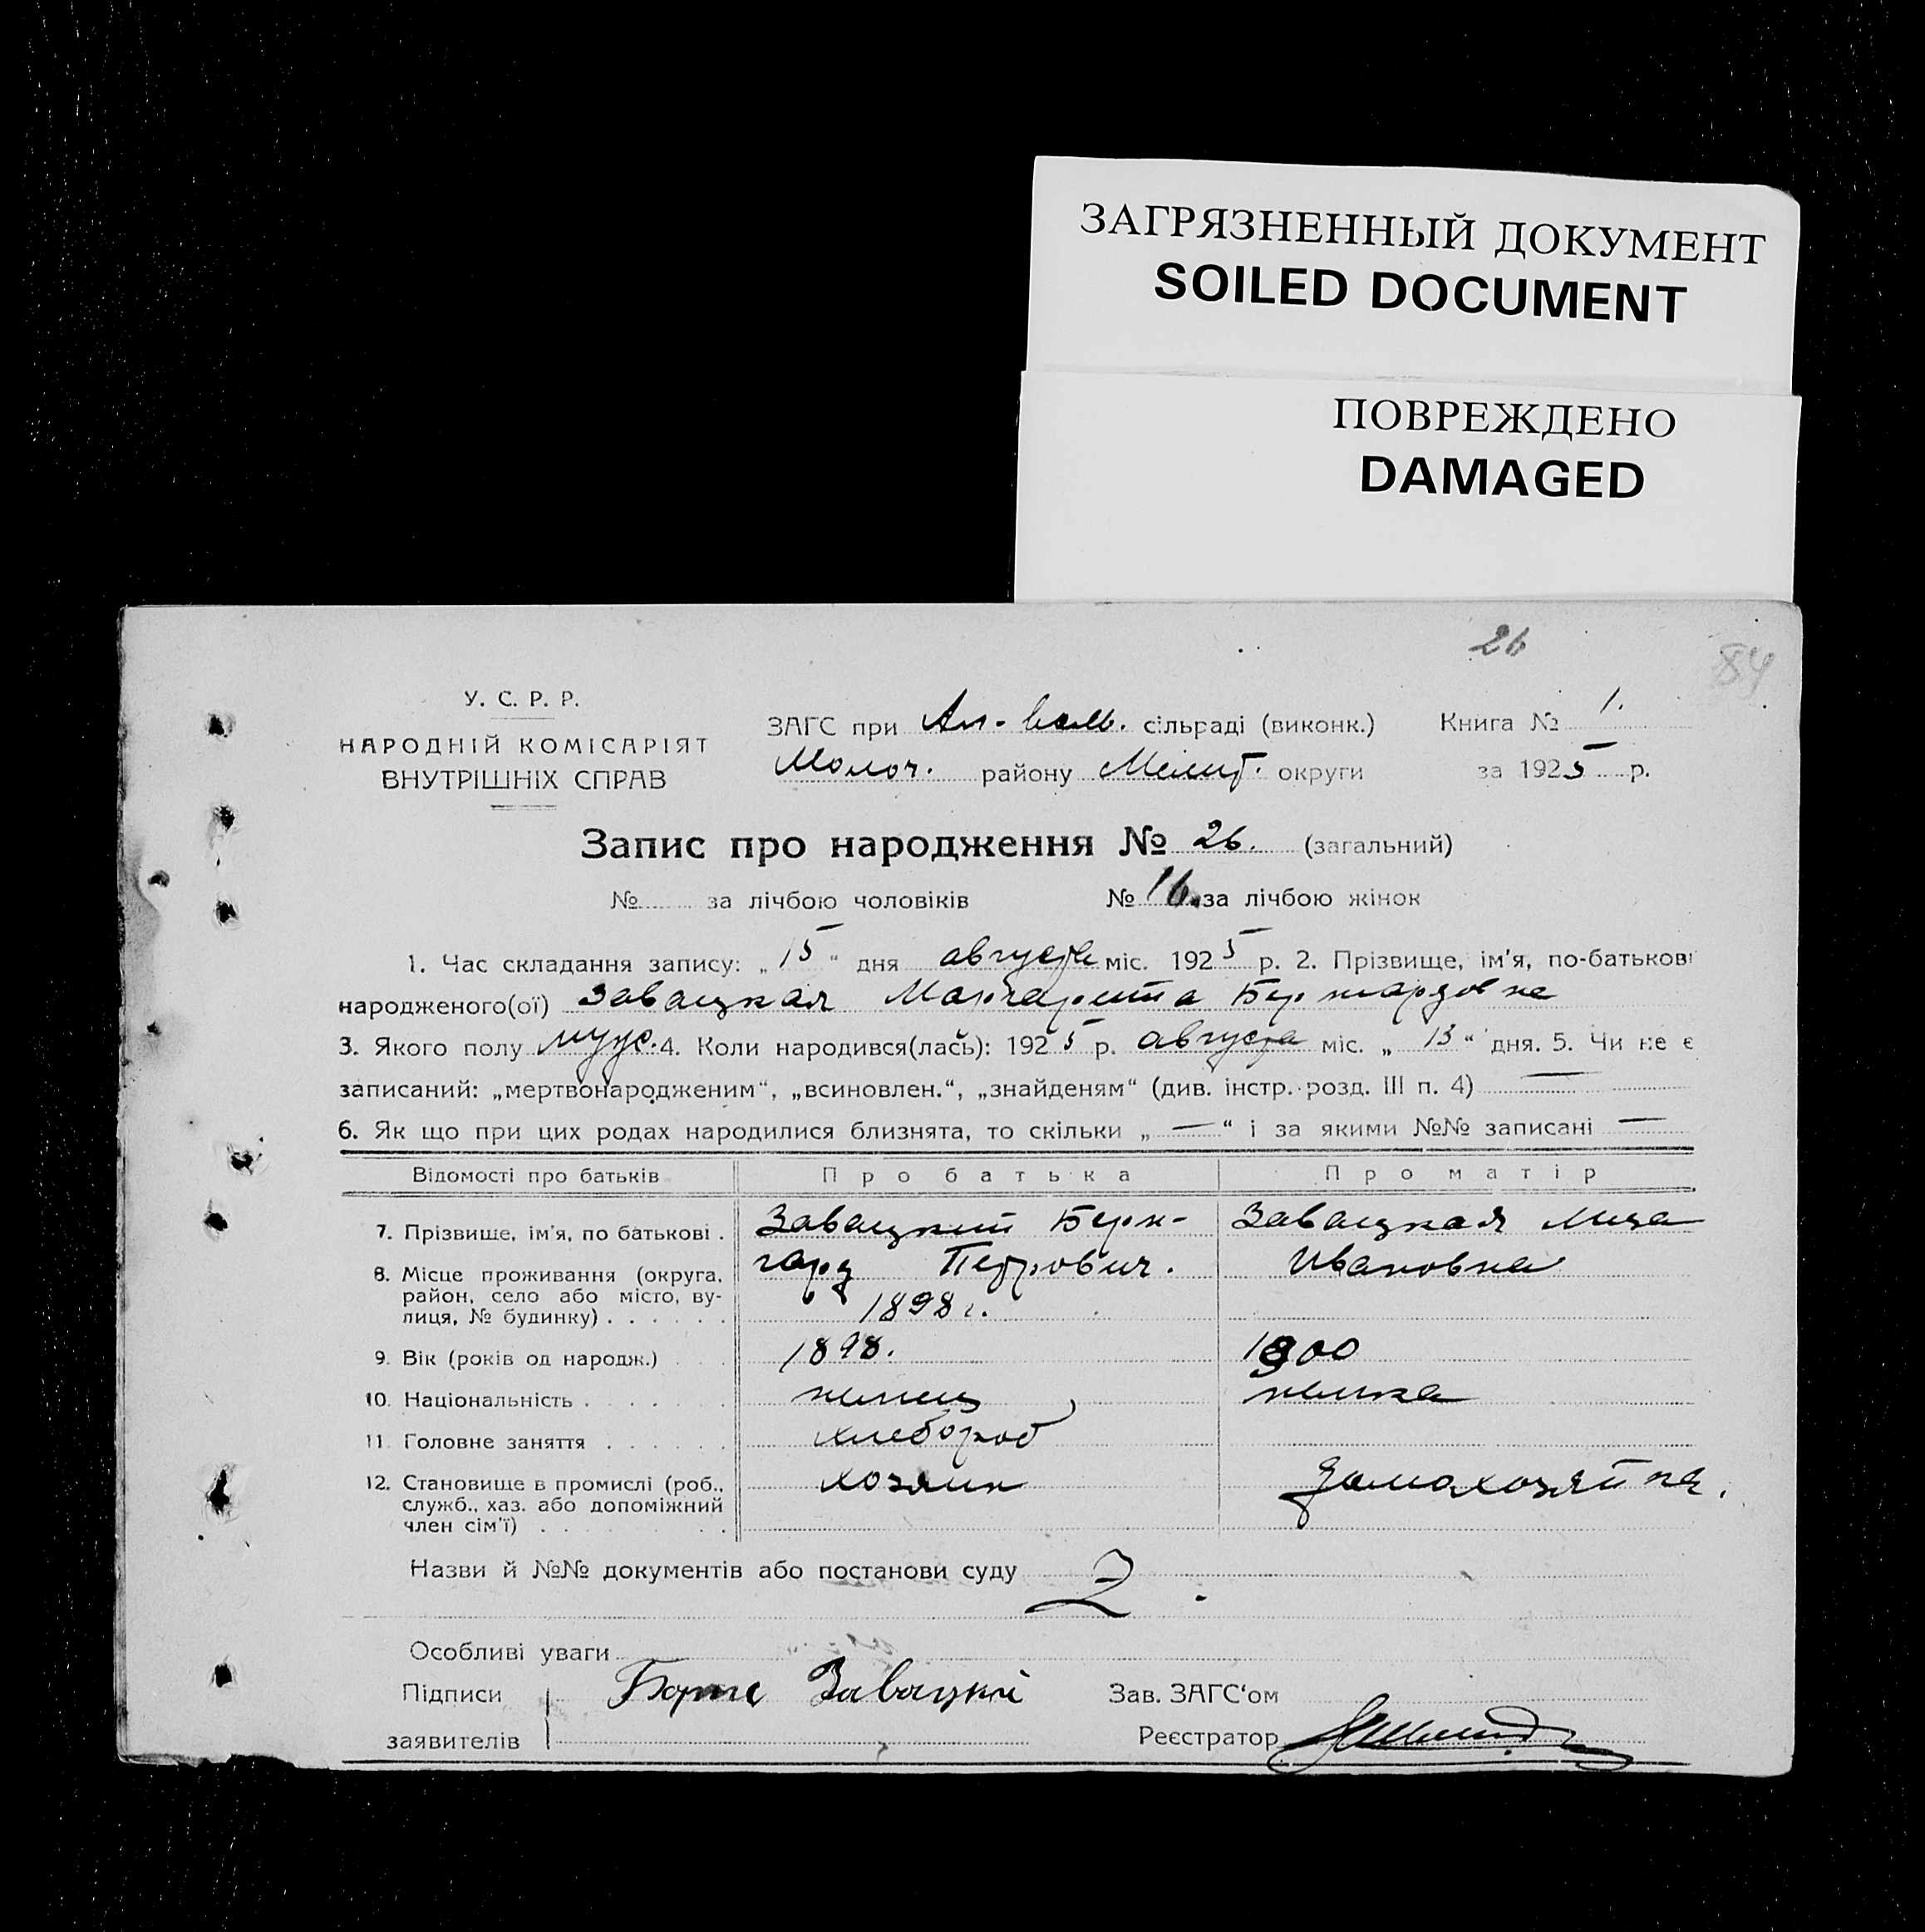 ЗАГРЯЗНЕННЫЙ ДОКУМЕНТ
SOILED DOCUMENT
ПОВРЕЖДЕНО
DAMAGED
26
84
У. С. Р. Р.
НАРОДНІЙ КОМІСАРІЯТ
ВНУТРІШНІХ СПРАВ
ЗАГС при сільраді (виконк.) Книга № 1.
Молоч. району Меліт. округи за 1925 р.
Запис про народження № 26. (загальний)
№ за лічбою чоловіків № 16. за лічбою жінок
1. Час складання запису: „15“ дня августа міс. 1925 р. 2. Прізвище, ім'я, по-батькові
народженого(ої) Завацкая Маргарита Бернардовна
3. Якого полу 4. Коли народився(лась): 1925 р. августа міс. „13“ дня. 5. Чи не є
записаний: „мертвонародженим“, „всиновлен.“, „знайденям“ (див. інстр. розд. III п. 4) —
6. Як що при цих родах народилися близнята, то скільки „—“ і за якими №№ записані —
Відомості про батьків Про батька Про матір
7. Прізвище, ім'я, по батькові . Завацкий Берн- Завацкая Лиза
гард Петрович. Ивановна
8. Місце проживання (округа, район, село або місто, ву-
лиця, № будинку) . . . . . . 1898 г.
9. Вік (років од народж.) . . . 1898. 1900
10. Національність . . . . . . . немец немка
11. Головне заняття . . . . . . хлебороб
12. Становище в промислі (роб., хозяин домахозяйка.
служб., хаз. або допоміжний
член сім'ї) . . . . . . . .
Назви й №№ документів або постанови суду
Особливі уваги
Підписи Завацкий Зав. ЗАГС'ом
заявителів Реєстратор